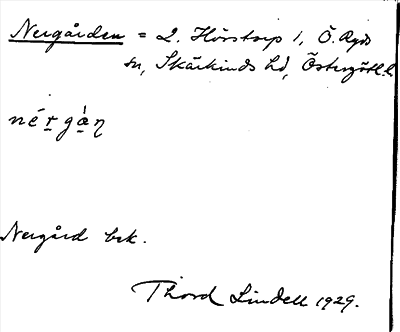 Nergården = 2. Hörstorp 1, Ö. Ryds
sn, Skärkinds hd, Östergötl. l.
nérgàn
Nergård bek.
Thord Lindell 1929.